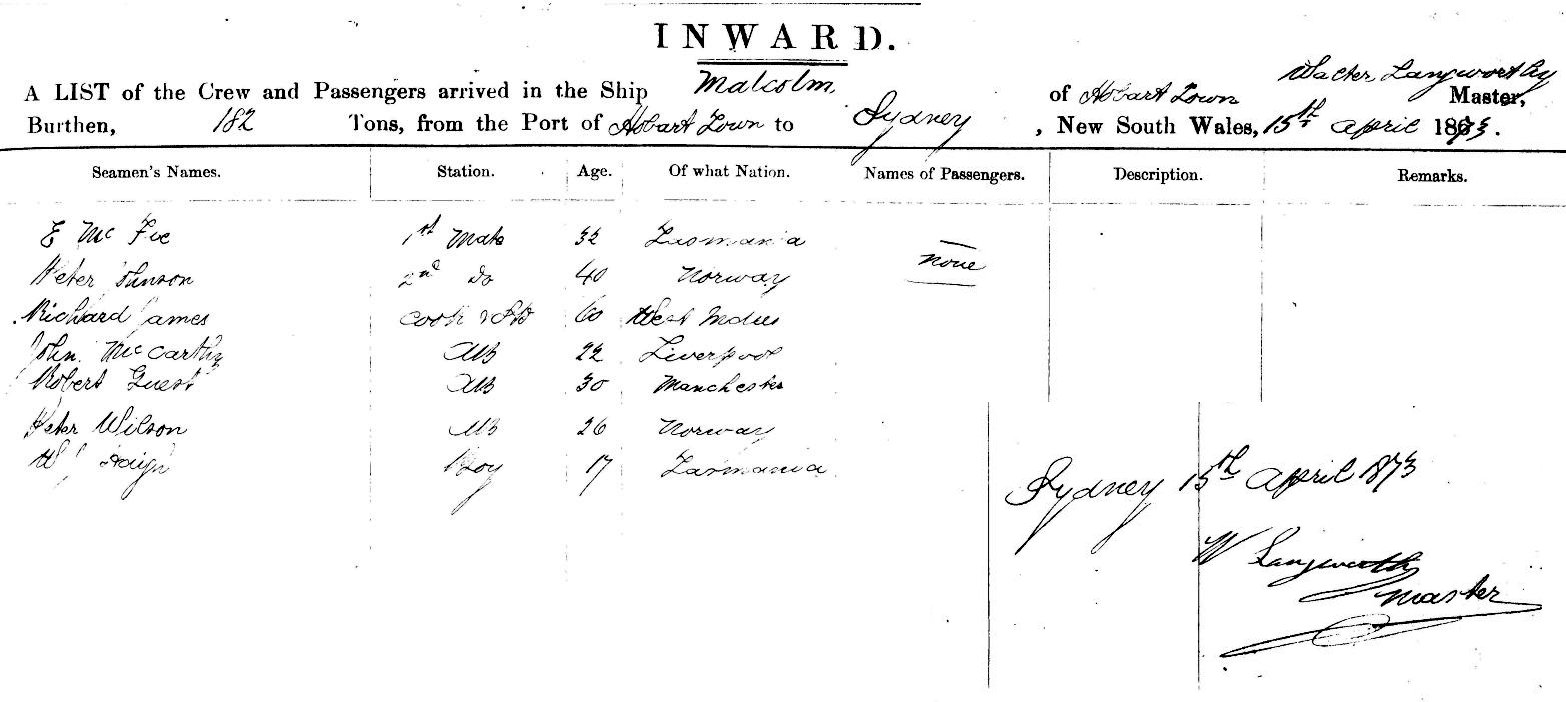 INWARD.
Walter Langworthy
A LIST of the Crew and Passengers arrived in the Ship Malcolm of Hobart Town Master,
Burthen, 182 Tons, from the Port of Hobart Town to Sydney, New South Wales, 15th April 1873.
Seamen's Names. Station. Age. Of what Nation. Names of Passengers. Description. Remarks.
E Mc Fie 1st Mate 32 Tasmania
none
Peter Johnson 2nd Do 40 Norway
Richard James Cook & Std 60 West Indies
John McCarthy AB 22 Liverpool
Robert Guest AB 30 Manchester
Peter Wilson AB 26 Norway
W Haigh Boy 17 Tasmania
Sydney 15th April 1873
W Langworthy
master